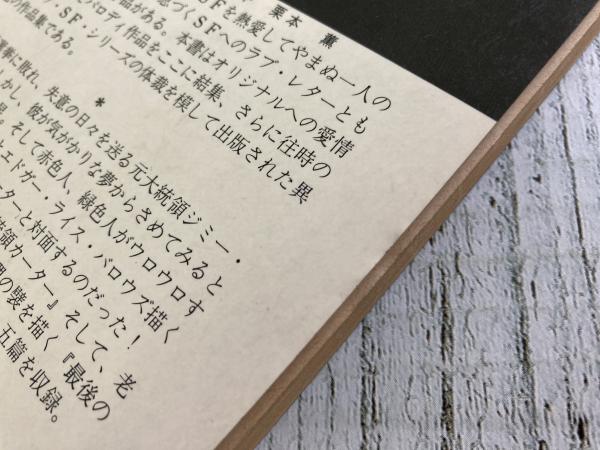 栗本 薫
Fを熱愛してやまぬ一人の
づくSFへのラブ・レターとも
品がある。本書はオリジナルへの愛情
パロディ作品をここに結集、さらに往時の
・SF・シリーズの体裁を模して出版された異
の作品集である。
*
選挙に敗れ、失意の日々を送る元大統領ジミー・
しかし、彼が気がかりな夢からさめてみると
そして赤色人、緑色人がウロウロす
エドガー・ライス・バロウズ描く
ターと対面するのだった！
統領カーター』そして、老
の襞を描く『最後の
五篇を収録。